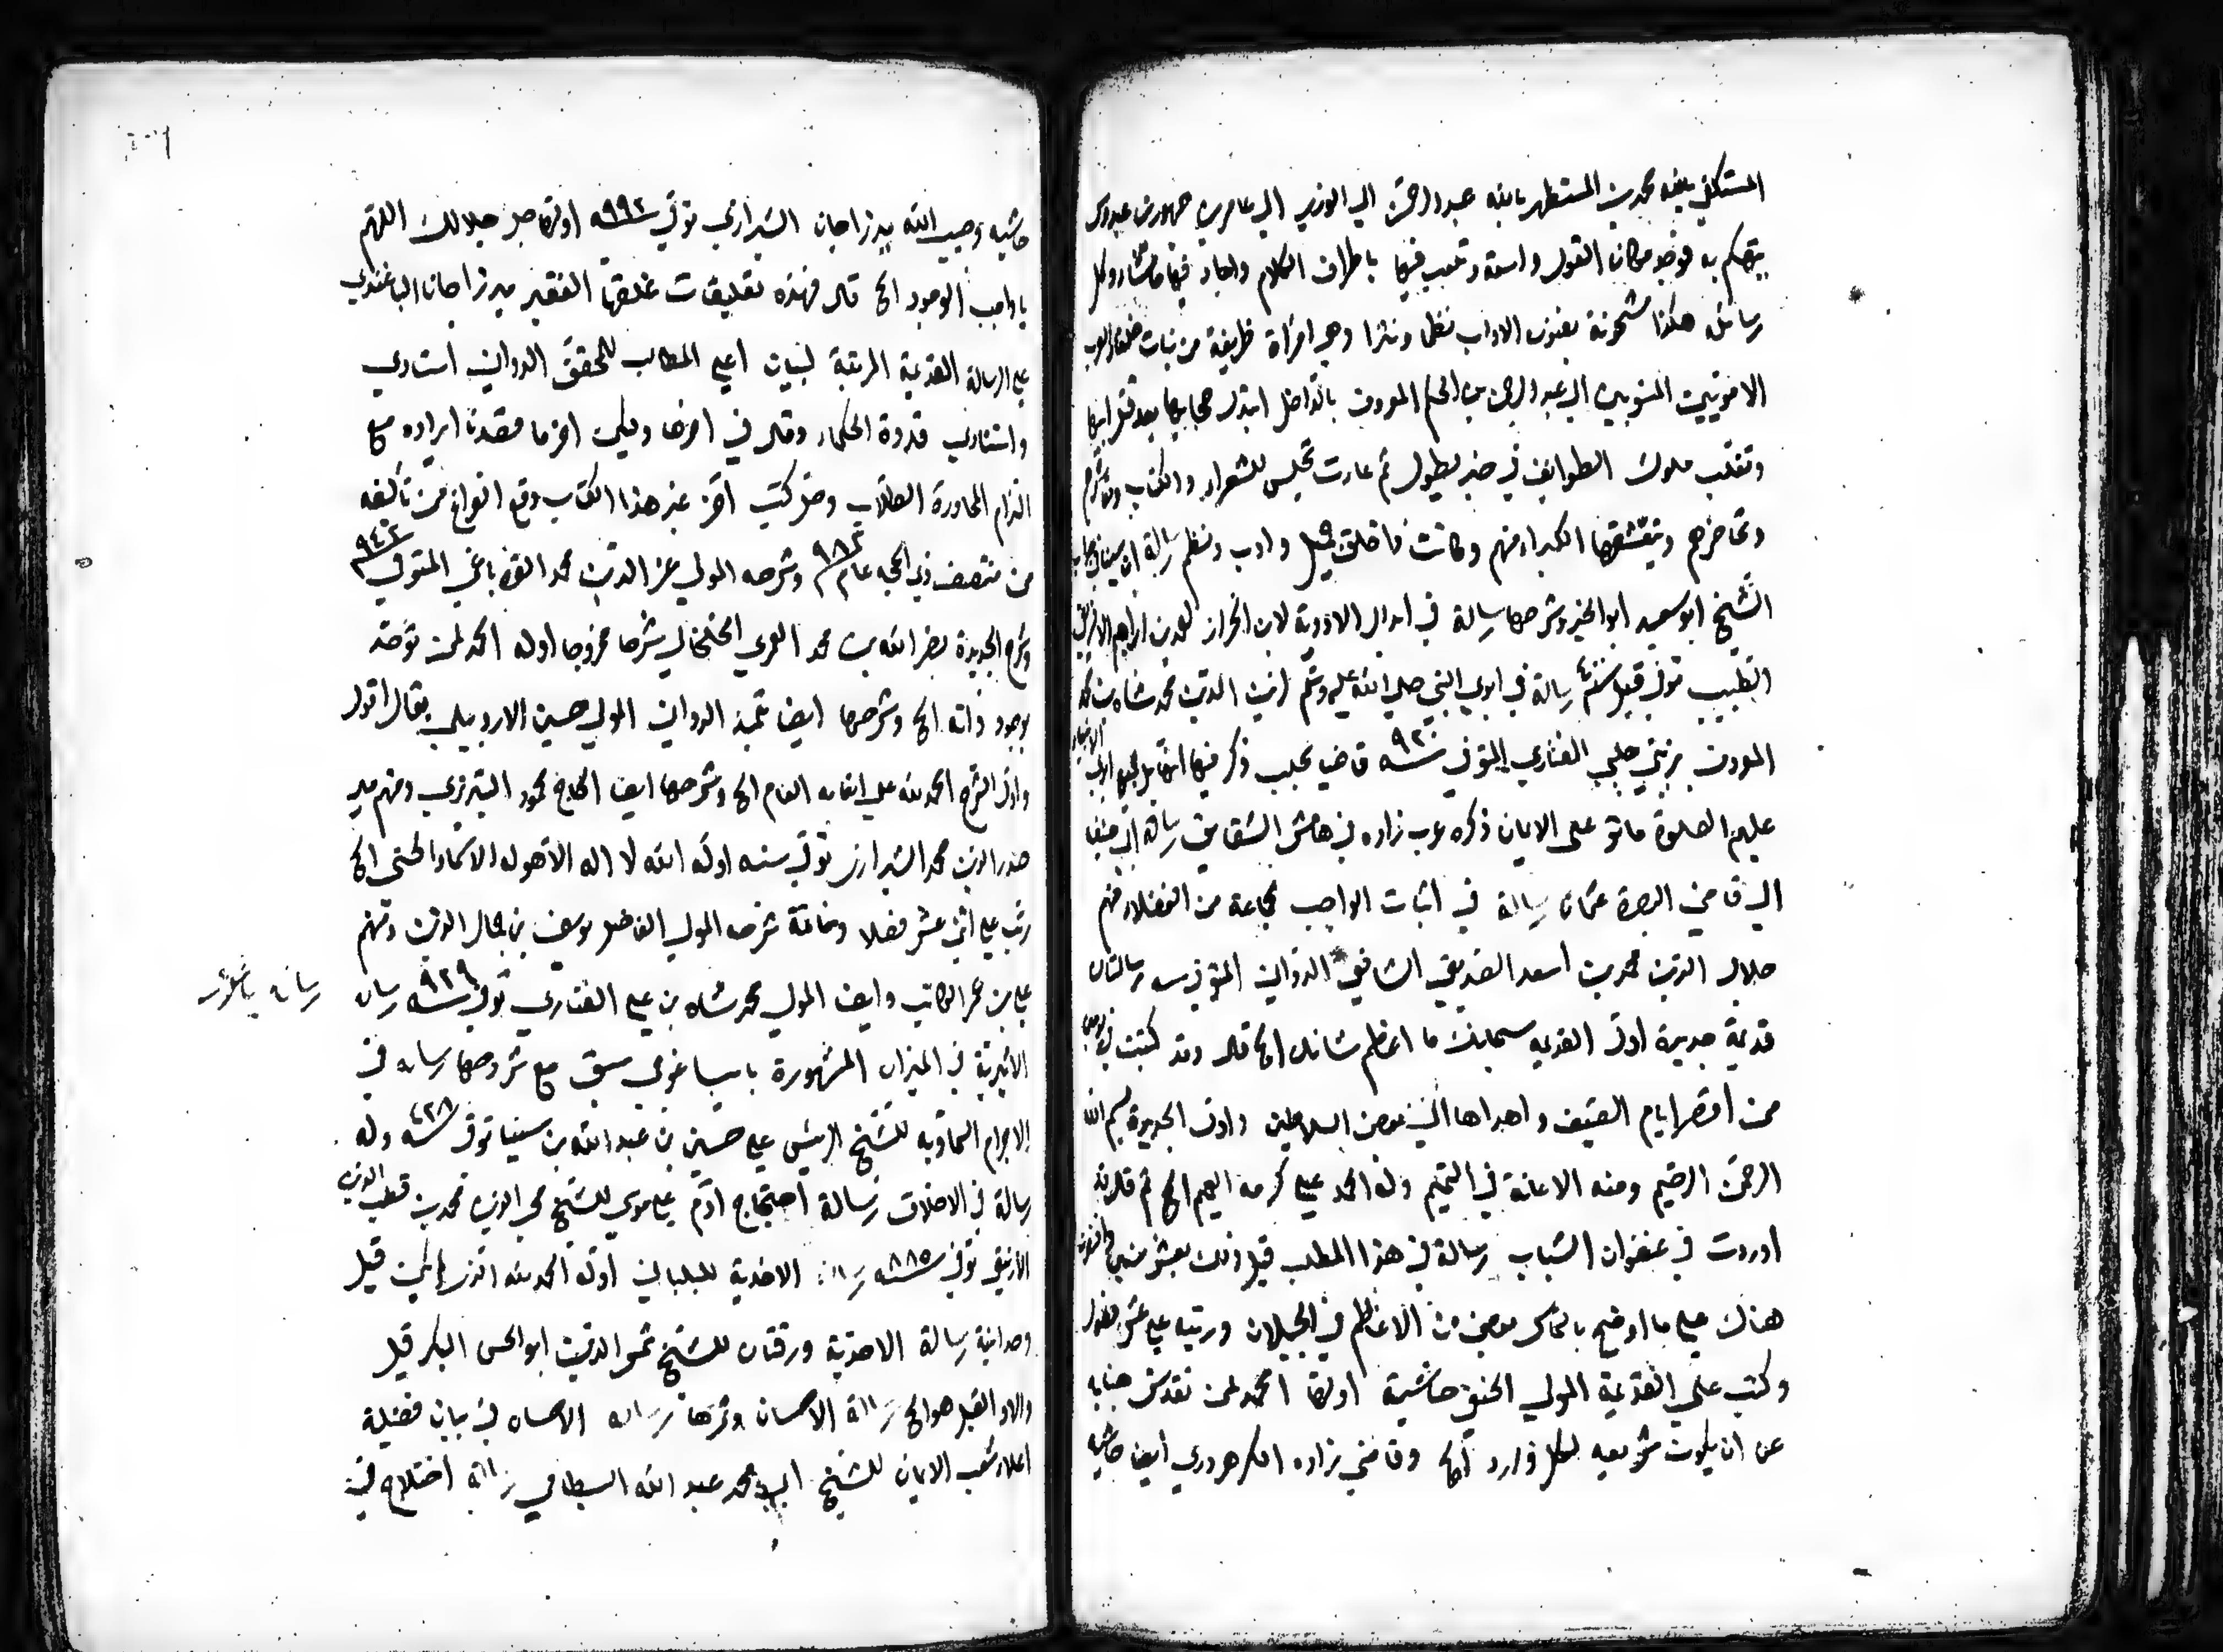 المستكفي بالله محمد بن المستظهر بالله عبد الرحمن الي الوزير ابي عامر بن جهور بن عبدوس
يتهكم به فوجد مكان القول واسعة وتلعب فيها باطراف الكلام واجاد فيها ما شاء وكل
رسائله هكذا مشحونة بفنون الاداب نظما ونثرا وهي امرأة ظريفة من بنات خلفاء العرب
الامويين المنسوبين الي عبد الرحمن بن الحكم المعروف بالداخل ابتذل حجابها بعد قتل ابيها
وتغلب ملوك الطوايف في خبر يطول ثم عادت تجلس للشعراء والكتاب وتعاشرهم
وتحاضرهم ويتعشقها الكبراء منهم وكانت ذا خلق جميل وادب ونظم رسالة ابن سينا
الشيخ ابو سعيد ابو الخير وشرحها رسالة في ابدال الادوية لابن الجزار احمد بن ابراهيم الافريقي
الطبيب توفي قبل سنة ٤٠٠ رسالة في ابوي النبي صلي الله عليه وسلم لزين الدين محمد شاه بن محمد
المعروف بزيني چلبي الفناري المتوفي سنه ٩٢٠ قاضيا بحلب ذكر فيها انهما بل جميع آباء الانبياء
عليهم الصلوة ماتو علي الايمان ذكره عرب زاده في هامش الشقايق رسالة ابي حنيفة
الي قاضي البصرة عثمان رسالة في اثبات الواجب لجماعة من الفضلاء منهم
جلال الدين محمد بن اسعد الصديقي الشافعي الدواني المتوفي سنه رسالتان
قديمة جديدة اول القديمه سبحانك ما اعظم شانك الخ قال وقد كتبت في يومين
من اقصر ايام الصيف واهداها الي بعض السلاطين واول الجديدة بسم الله
الرحمن الرحيم ومنه الاعانة في التتميم وله الحمد علي كرمه العميم الخ ثم قال قد
اوردت في عنفوان الشباب رسالة في هذا المطلب قبل ذلك بعشر سنين
هناك علي ما اوضح بالتماس بعض من الاعاظم في الجيلان ورتبه علي عشر فصول
وكتب علي القديمة المولي الحنفي حاشية اولها الحمد لمن تقدس جنابه
عن ان يكون شريعه لكل وارد الخ وقاضي زاده الكرهرودي ايضا حاشيه
حاشيه وحبيب الله ميرزاجان الشيرازي توفي سنه ٩٩٤ اولها جل جلالك اللهم
يا واجب الوجود الخ قال فهذه تعليقات علقها الفقير ميرزا جان الباغندي
علي الرسالة القديمة المرتبة لبيان اعلي المطالب للمحقق الدواني استادي
واستنادي قدوة الحكماء وقال في اخرها وليكن اخر ما قصدنا ايراده مع
التزام المحاورة الطلاب وحضر كتب اخر غير هذا الكتاب وقع الفراغ من تأليفه
من منتصف ذي الحجه عام ٩٨٢ وشرحه المولي عز الدين محمد القره باغي المتوفي ٩٤٢
وشرح الجديدة نصر الله بن محمد العمري الخلخالي شرحا ممزوجا اوله الحمد لمن توحد
بوجود ذاته الخ وشرحها ايضا تلميذ الدواني المولي حسين الاردبيلي بقال اقول
واول الشرح الحمد لله علي انعامه العام الخ وشرحها ايضا الحاج محمود التبريزي ومنهم مير
صدر الدين محمد الشيرازي توفي سنه اوله الله لا اله الا هو له الاسماء الحسني الخ
رتب علي اثني عشر فصلا وخاتمة شرحه المولي الفاضل يوسف بن جمال الدين ومنهم
علي بن عمر الكاتبي وايضا المولي محمد شاه بن علي الفناري توفي سنه ٩٢٩ رساله
رساله
الاثيرية في الميزان المشهورة بايساغوجي سبق مع شروحها رساله في
الاجرام السماوية للشيخ الرئيس علي حسين بن عبد الله بن سينا توفي سنه ٤٢٨ وله
رسالة في الاخلاق رسالة احتجاج آدم علي موسي للشيخ محي الدين محمد بن قطب الدين
الازنيقي توفي سنه ٨٨٥ رسالة الاحدية للبلباني اوله الحمد لله الذي لم يكن قبل
وحدانية رسالة الاحدية ورقتان للشيخ شمس الدين ابو الحسن البكر قبل
والاد القبل هو الخ رسالة الاحسان وشرحها رساله الاحسان في بيان فضيلة
اعلا شعب الايمان للشيخ ابي محمد عبد الله البسطامي رسالة اختلاج في